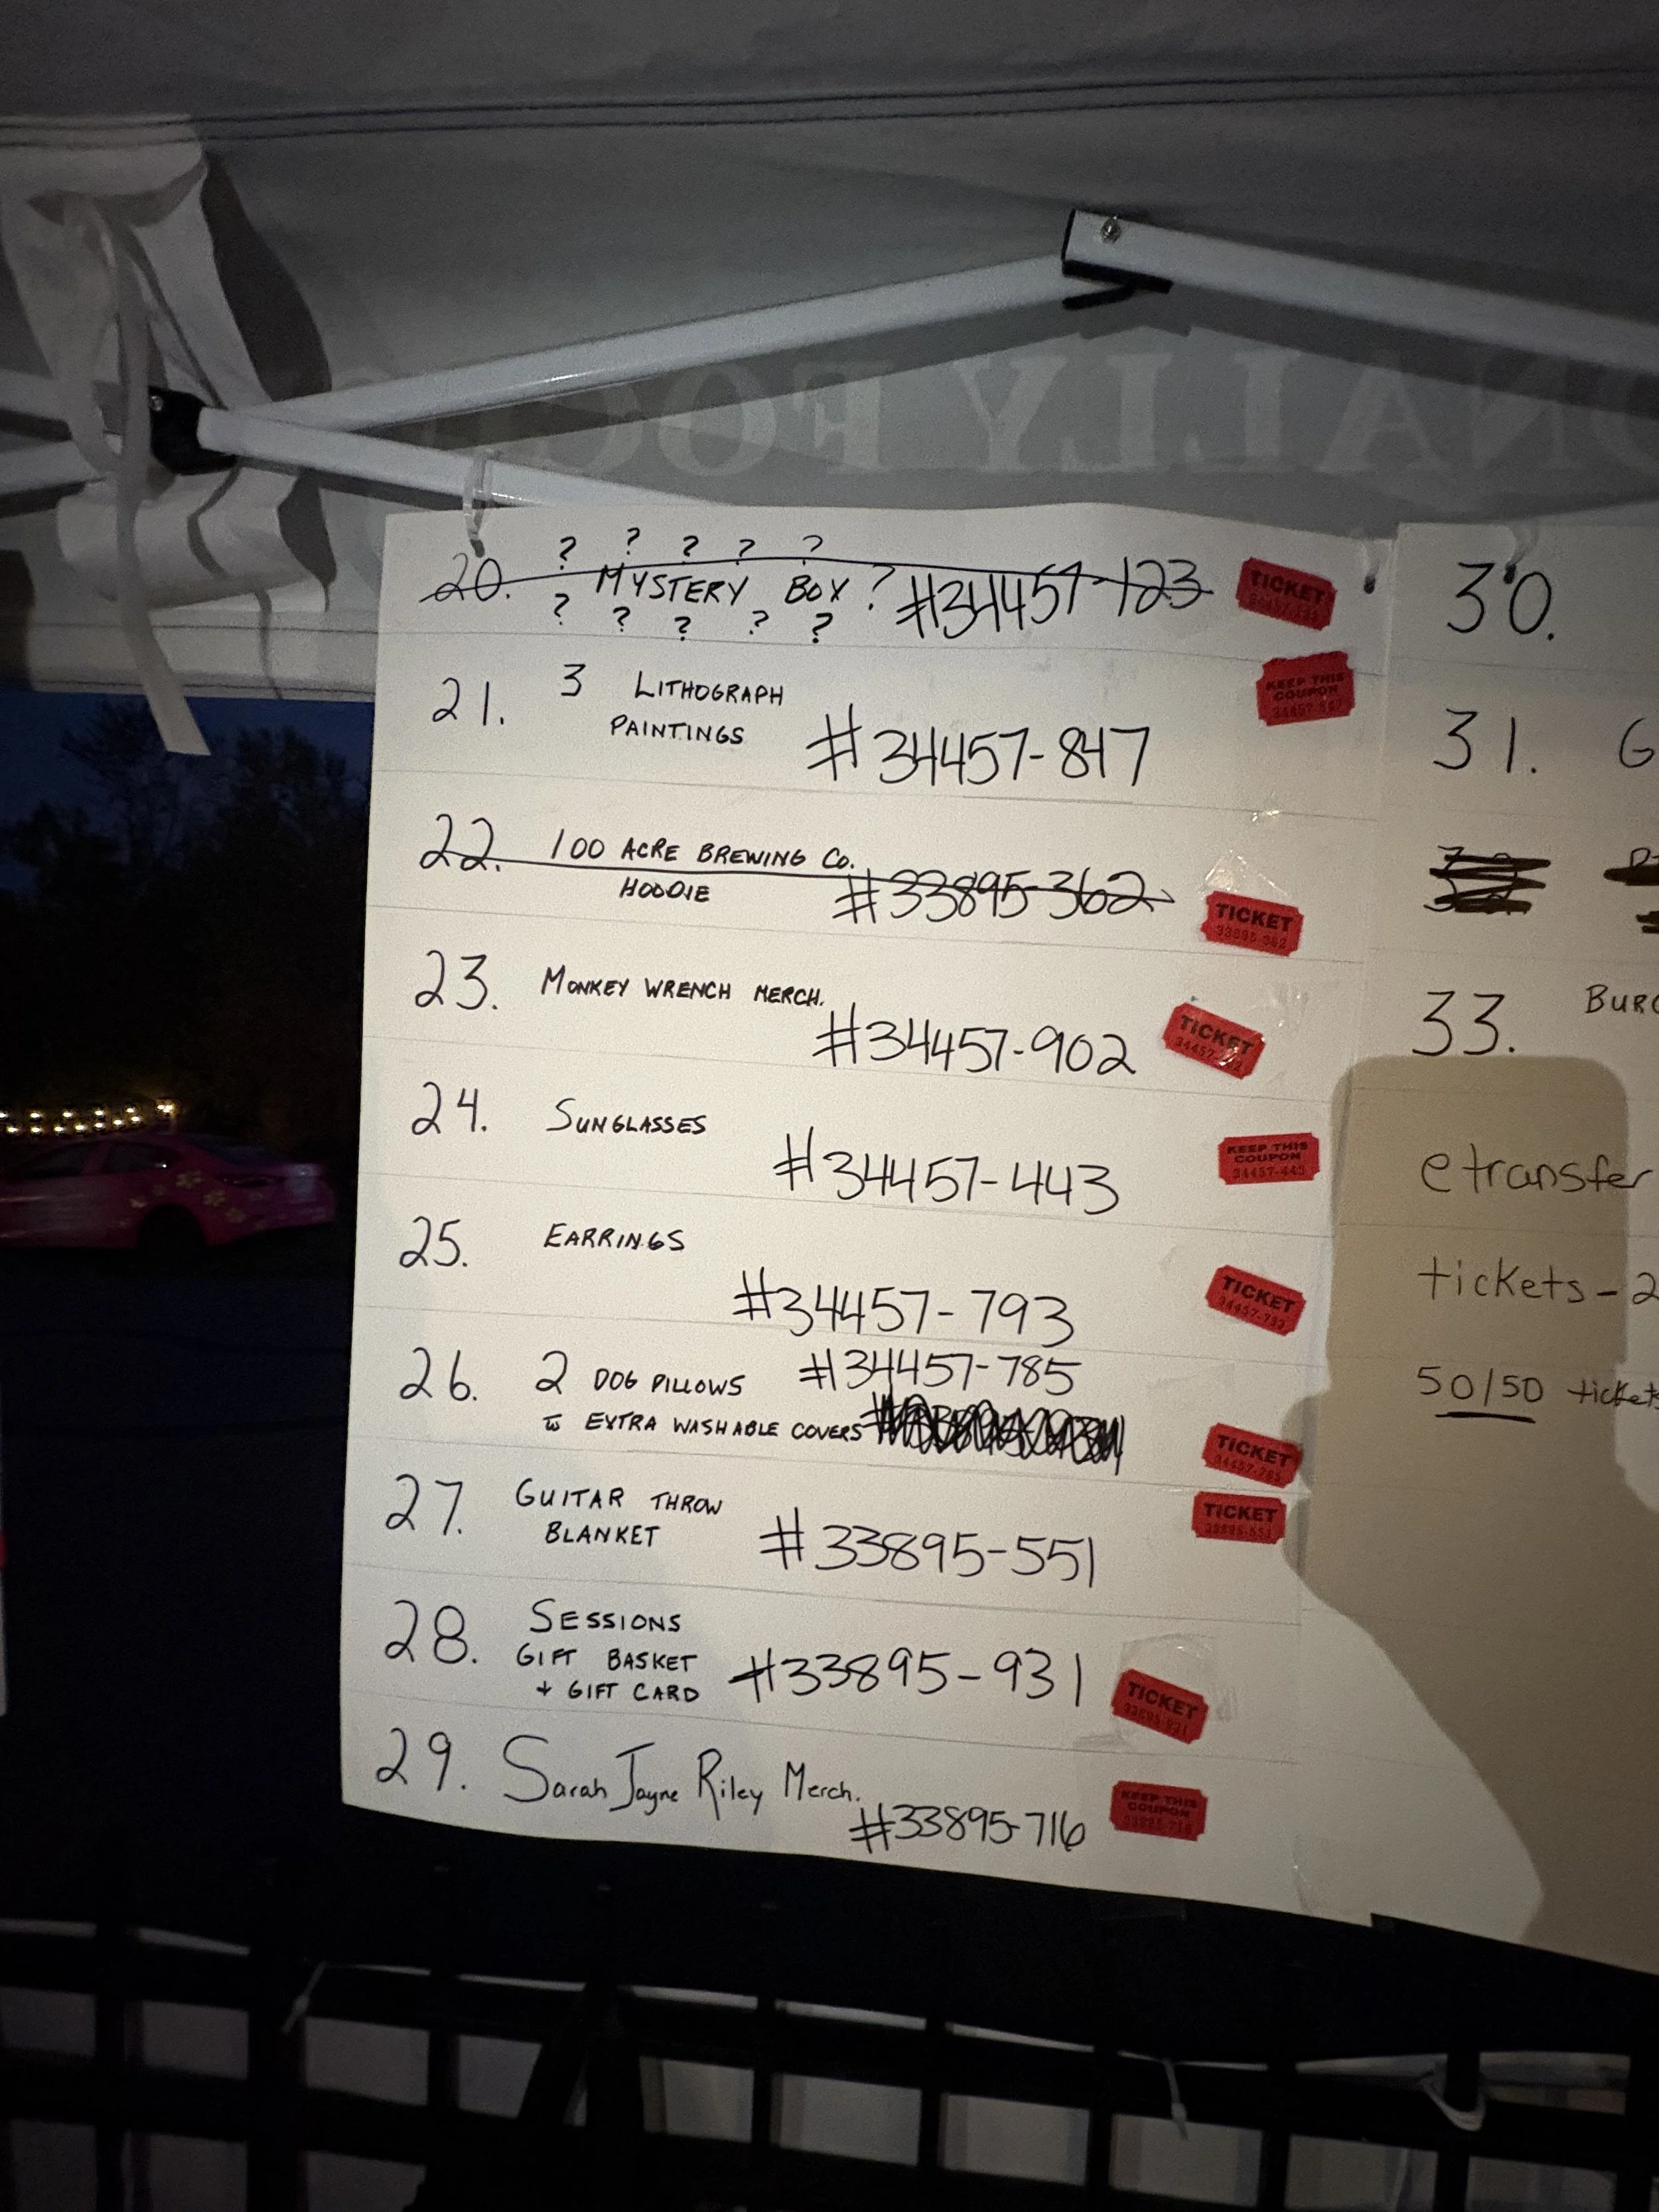 ? ? ? ? ?
20. MYSTERY BOX ? #34457-123
? ? ? ? ?
TICKET
21. 3 LITHOGRAPH
PAINTINGS
#34457-847
KEEP THIS
COUPON
34457-847
22. 100 ACRE BREWING CO.
HOODIE
#33895-362
TICKET
33895-362
23. MONKEY WRENCH MERCH.
#34457-902
TICKET
24. SUNGLASSES
#34457-443
KEEP THIS
COUPON
34457-443
25. EARRINGS
#34457-793
TICKET
34457-793
26. 2 DOG PILLOWS #34457-785
w EXTRA WASHABLE COVERS
TICKET
34457-785
27. GUITAR THROW
BLANKET
#33895-551
TICKET
33895-551
28. SESSIONS
GIFT BASKET
+ GIFT CARD
#33895-931
TICKET
33895-931
29. Sarah Jayne Riley Merch.
#33895-716
KEEP THIS
COUPON
33895-716
30.
31. G
33. BURG
etransfer
tickets - 2
50/50 tickets